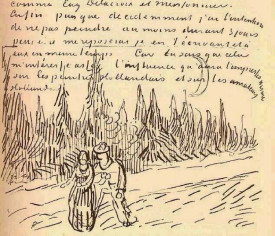 comme Eug Delacroix et Meissonier.
Enfin puisque decidemment j'ai l'intention
de ne pas peindre au moins durant 3 jours
peut être me reposerai je en t'écrivant à toi
en même temps Car
m'intéresse assez l'influence qu'aura l'impressionnisme
sur les peintres hollandais et sur les amateurs
hollandais.